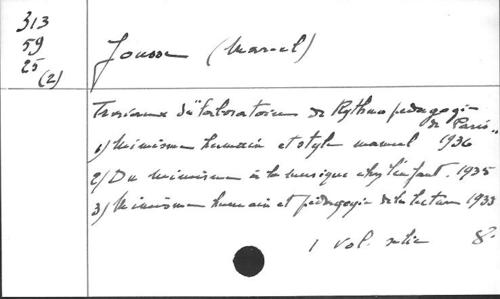 313
59
25
(2)
Jousse (Marcel)
Travaux du "laboratoire de Rythmo pédagogie
de Paris"
1) Mimisme humain et style manuel 1936
2) Du mimisme à la musique chez l'enfant. 1935
3) Mimisme humain et pédagogie de la lecture 1933
1 vol. relié 8°